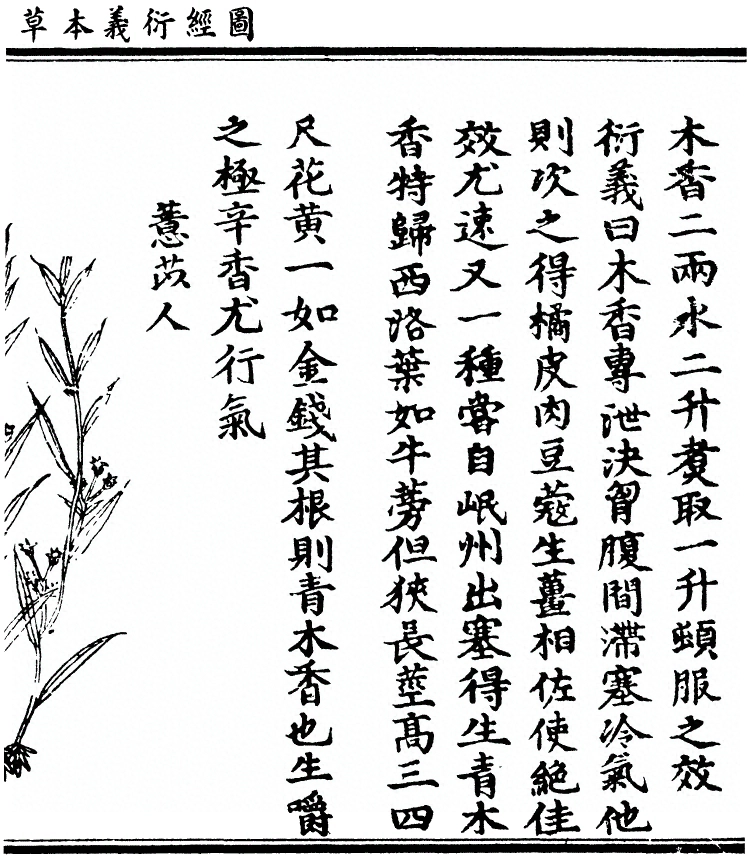 圖經衍義本草
木香二兩水二升煑取一升頓服之效
衍義曰木香專泄決胷腹間滯塞冷氣他
則次之得橘皮肉豆蔻生薑相佐使絕佳
效尤速又一種嘗自岷州出塞得生青木
香特歸西洛葉如牛蒡但狹長莖高三四
尺花黄一如金錢其根則青木香也生嚼
之極辛香尤行氣
薏苡人